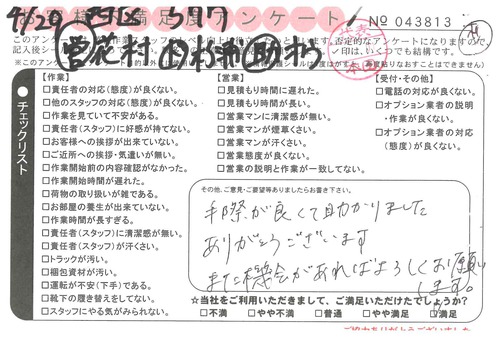 お客様満足度アンケート
№ 043813
4/20
577
このアンケート
否定的なアンケートになりますので
記入後シー
印は、いくつでも結構です。
チェックリスト
【作業】
□責任者の対応(態度)が良くない。
□他のスタッフの対応(態度)が良くない。
□作業を見ていて不安がある。
□責任者(スタッフ)に好感が持てない。
□お客様への挨拶が出来ていない。
□ご近所への挨拶・気遣いが無い。
□作業開始前の内容確認がなかった。
□作業開始時間が遅れた。
□荷物の取り扱いが雑である。
□お部屋の養生が出来ていない。
□作業時間が長すぎる。
□責任者(スタッフ)に清潔感が無い。
□責任者(スタッフ)が汗くさい。
□トラックが汚い。
□梱包資材が汚い。
□運転が不安(下手)である。
□靴下の履き替えをしてない。
□スタッフにやる気がみられない。
【営業】
□見積もり時間に遅れた。
□見積もり時間が長い。
□営業マンに清潔感が無い。
□営業マンが煙草くさい。
□営業マンが汗くさい。
□営業態度が良くない。
□営業の説明と作業が一致してない。
【受付・その他】
□電話の対応が良くない。
□オプション業者の説明
・作業が良くない。
□オプション業者の対応
(態度)が良くない。
その他、ご意見・ご要望等ありましたらお書き下さい。
手際が良くて助かりました
ありがとうございます
また機会があればよろしくお願い
します。
☆当社をご利用いただきまして、ご満足いただけたでしょうか?
□不満 □やや不満 □普通 □やや満足 □満足
ご協力ありがとうございました